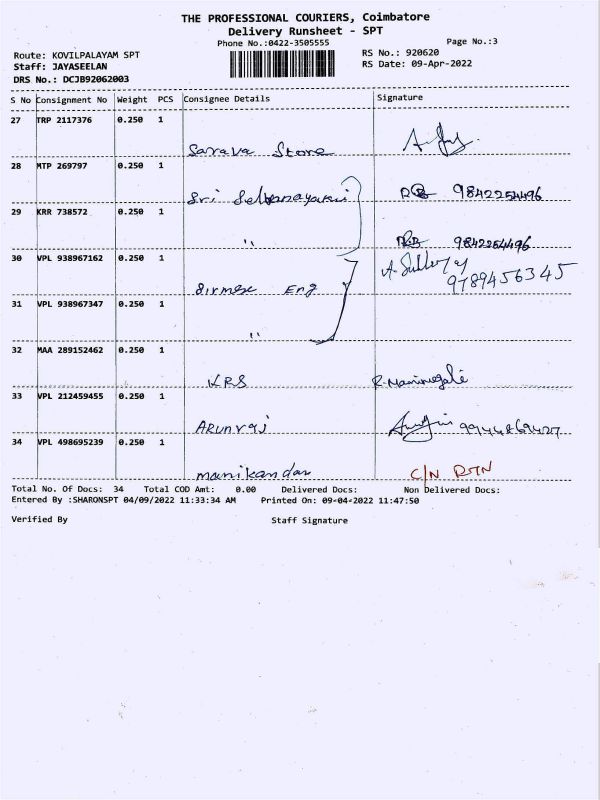 THE PROFESSIONAL COURIERS, Coimbatore
Delivery Runsheet - SPT
Phone No.:0422-3505555
Page No.:3
Route: KOVILPALAYAM SPT
RS No.: 920620
Staff: JAYASEELAN
RS Date: 09-Apr-2022
DRS No.: DCJB92062003
S No Consignment No Weight PCS Consignee Details Signature
27 TRP 2117376 0.250 1
Sarava Store
28 MTP 269797 0.250 1
Sri 9842254496
29 KRR 738572 0.250 1
" 9842254496
30 VPL 938967162 0.250 1
Eng 9789456345
31 VPL 938967347 0.250 1
"
32 MAA 289152462 0.250 1
KRS
33 VPL 212459455 0.250 1
Arunraj 9944869427
34 VPL 498695239 0.250 1
manikandan C/N RTN
Total No. Of Docs: 34 Total COD Amt: 0.00 Delivered Docs: Non Delivered Docs:
Entered By :SHARONSPT 04/09/2022 11:33:34 AM Printed On: 09-04-2022 11:47:50
Verified By Staff Signature